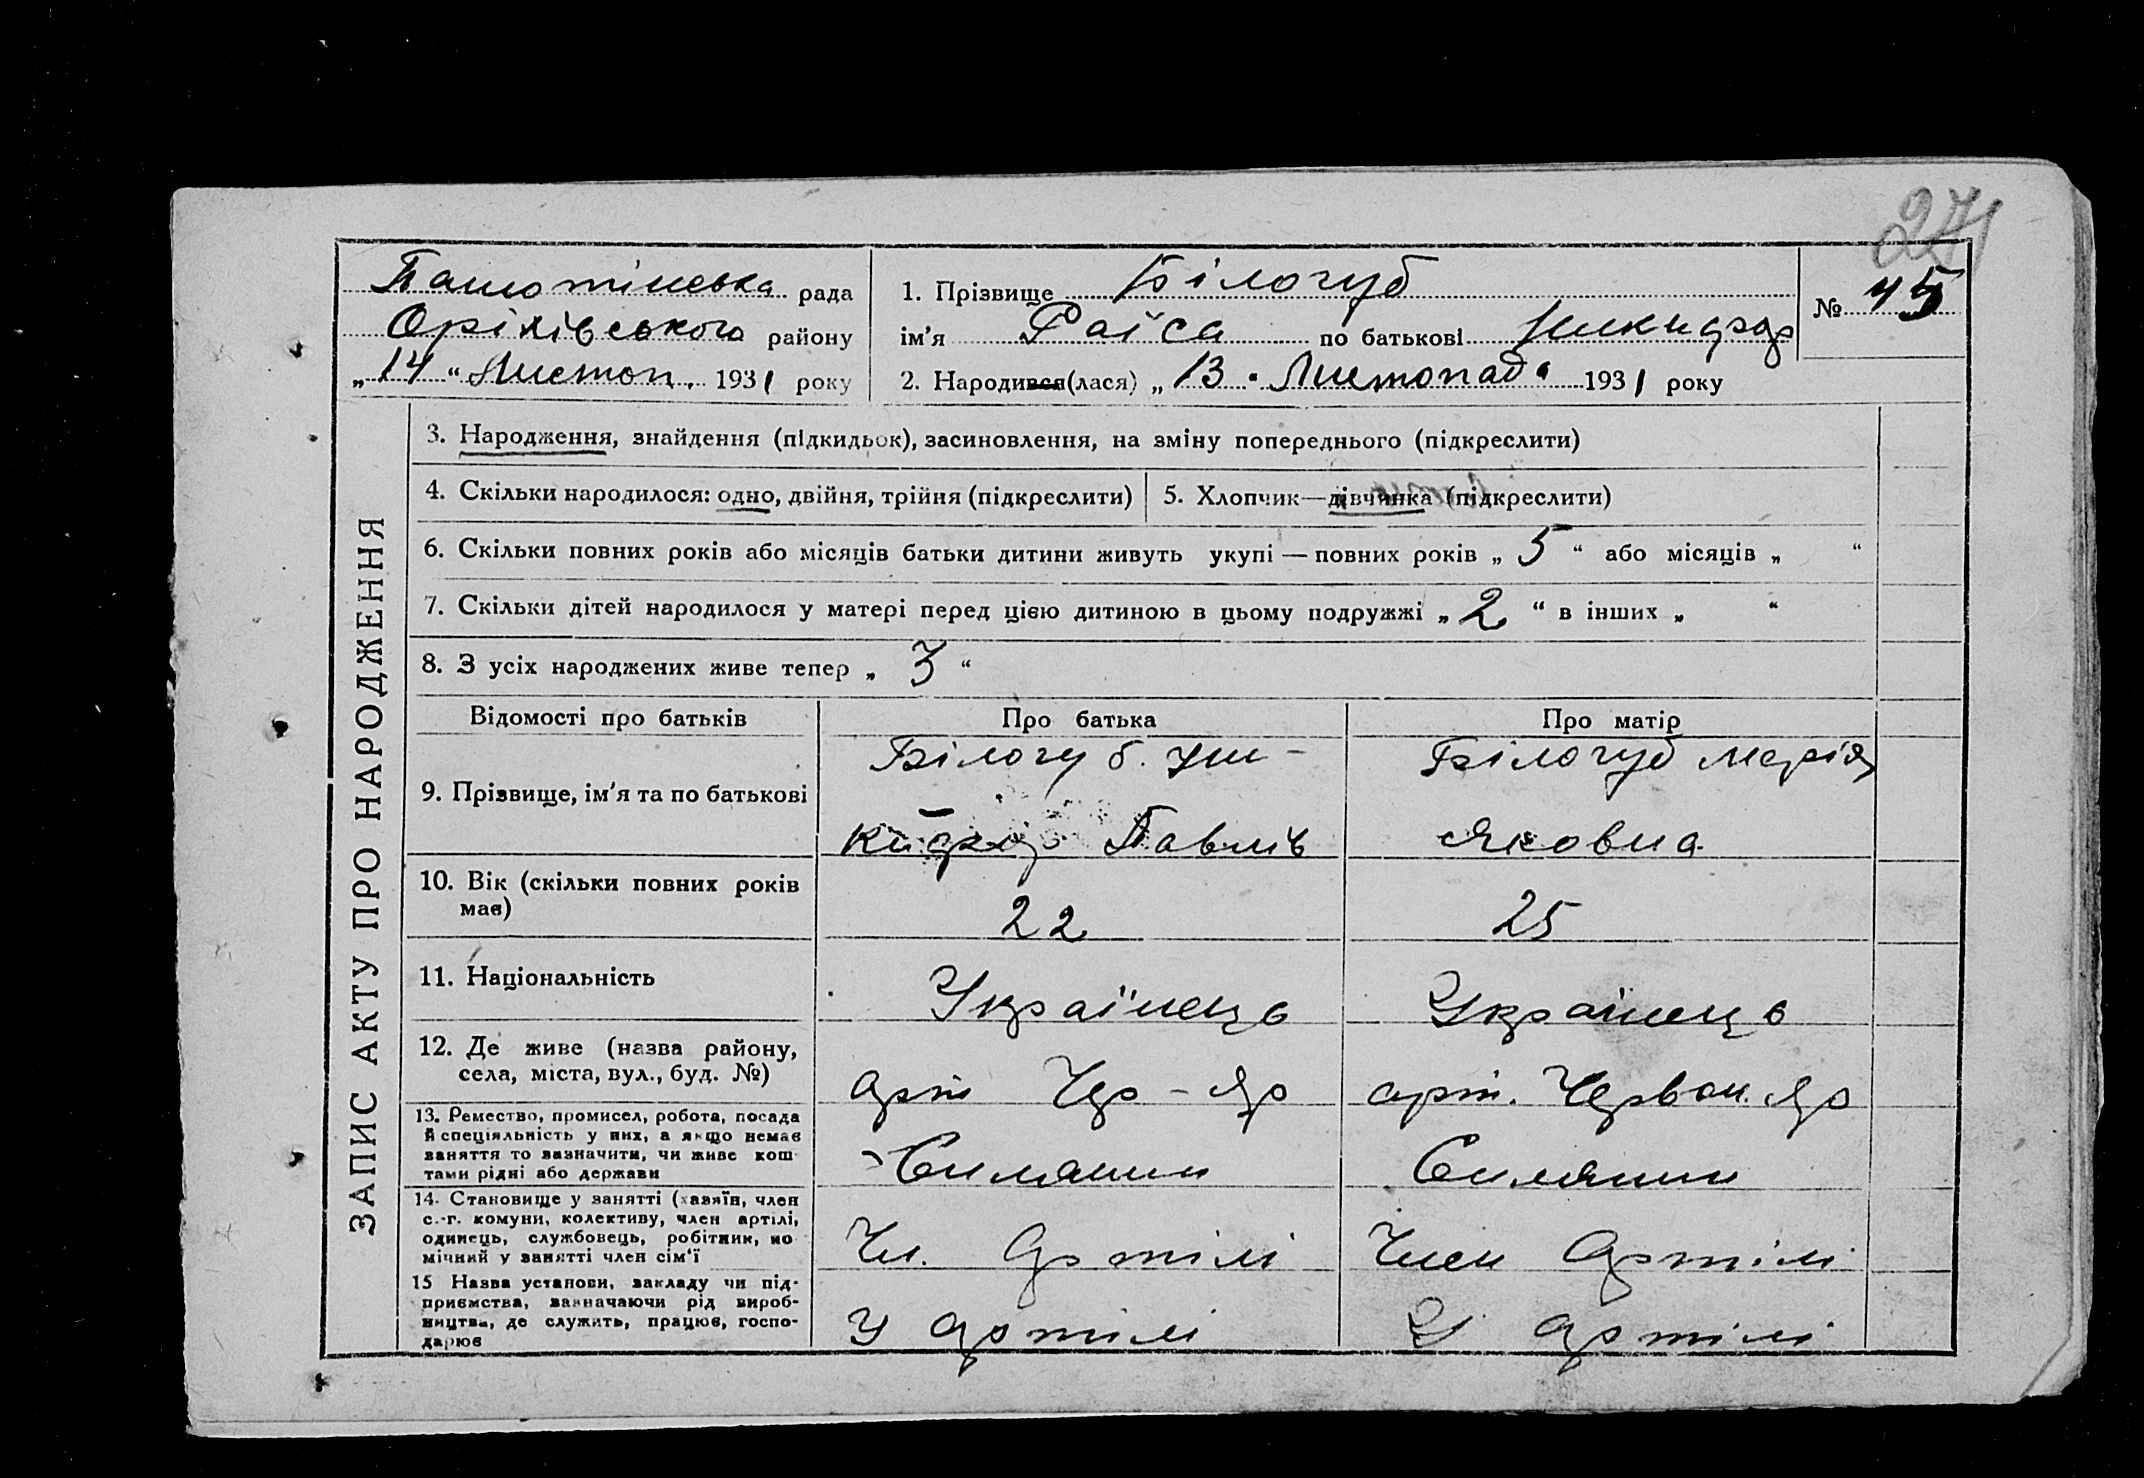 271
Камютінська рада
Оріхівського району
„14“ Листоп. 1931 року
1. Прізвище Білогуб
ім’я Раїса по батькові
2. Народився(лася) „13“ Листопада 1931 року
№ 45
ЗАПИС АКТУ ПРО НАРОДЖЕННЯ
3. Народження, знайдення (підкидьок), засиновлення, на зміну попереднього (підкреслити)
4. Скільки народилося: одно, двійня, трійня (підкреслити)
5. Хлопчик—дівчинка (підкреслити)
6. Скільки повних років або місяців батьки дитини живуть укупі — повних років „5“ або місяців „ “
7. Скільки дітей народилося у матері перед цією дитиною в цьому подружжі „2“ в інших „ “
8. З усіх народжених живе тепер „3“
Відомості про батьків
Про батька
Про матір
9. Прізвище, ім’я та по батькові
Білогуб
Павлів
Білогуб Марія
Яковна
10. Вік (скільки повних років
має)
22
25
11. Національність
Українець
Українець
12. Де живе (назва району,
села, міста, вул., буд. №)
арт Чер-Яр
арт. Червон. Яр
13. Ремество, промисел, робота, посада
й спеціяльність у них, а якщо немає
заняття то зазначити, чи живе кош-
тами рідні або держави
Силянин
Силянин
14. Становище у занятті (хазяїн, член
с.-г. комуни, колективу, член артілі,
одинець, службовець, робітник, по-
мічний у занятті член сім‘ї
Чл. Артілі
Член Артілі
15 Назва установи, закладу чи під-
приємства, зазначаючи рід вироб-
ництва, де служить, працює, госпо-
дарює
У артілі
У артілі